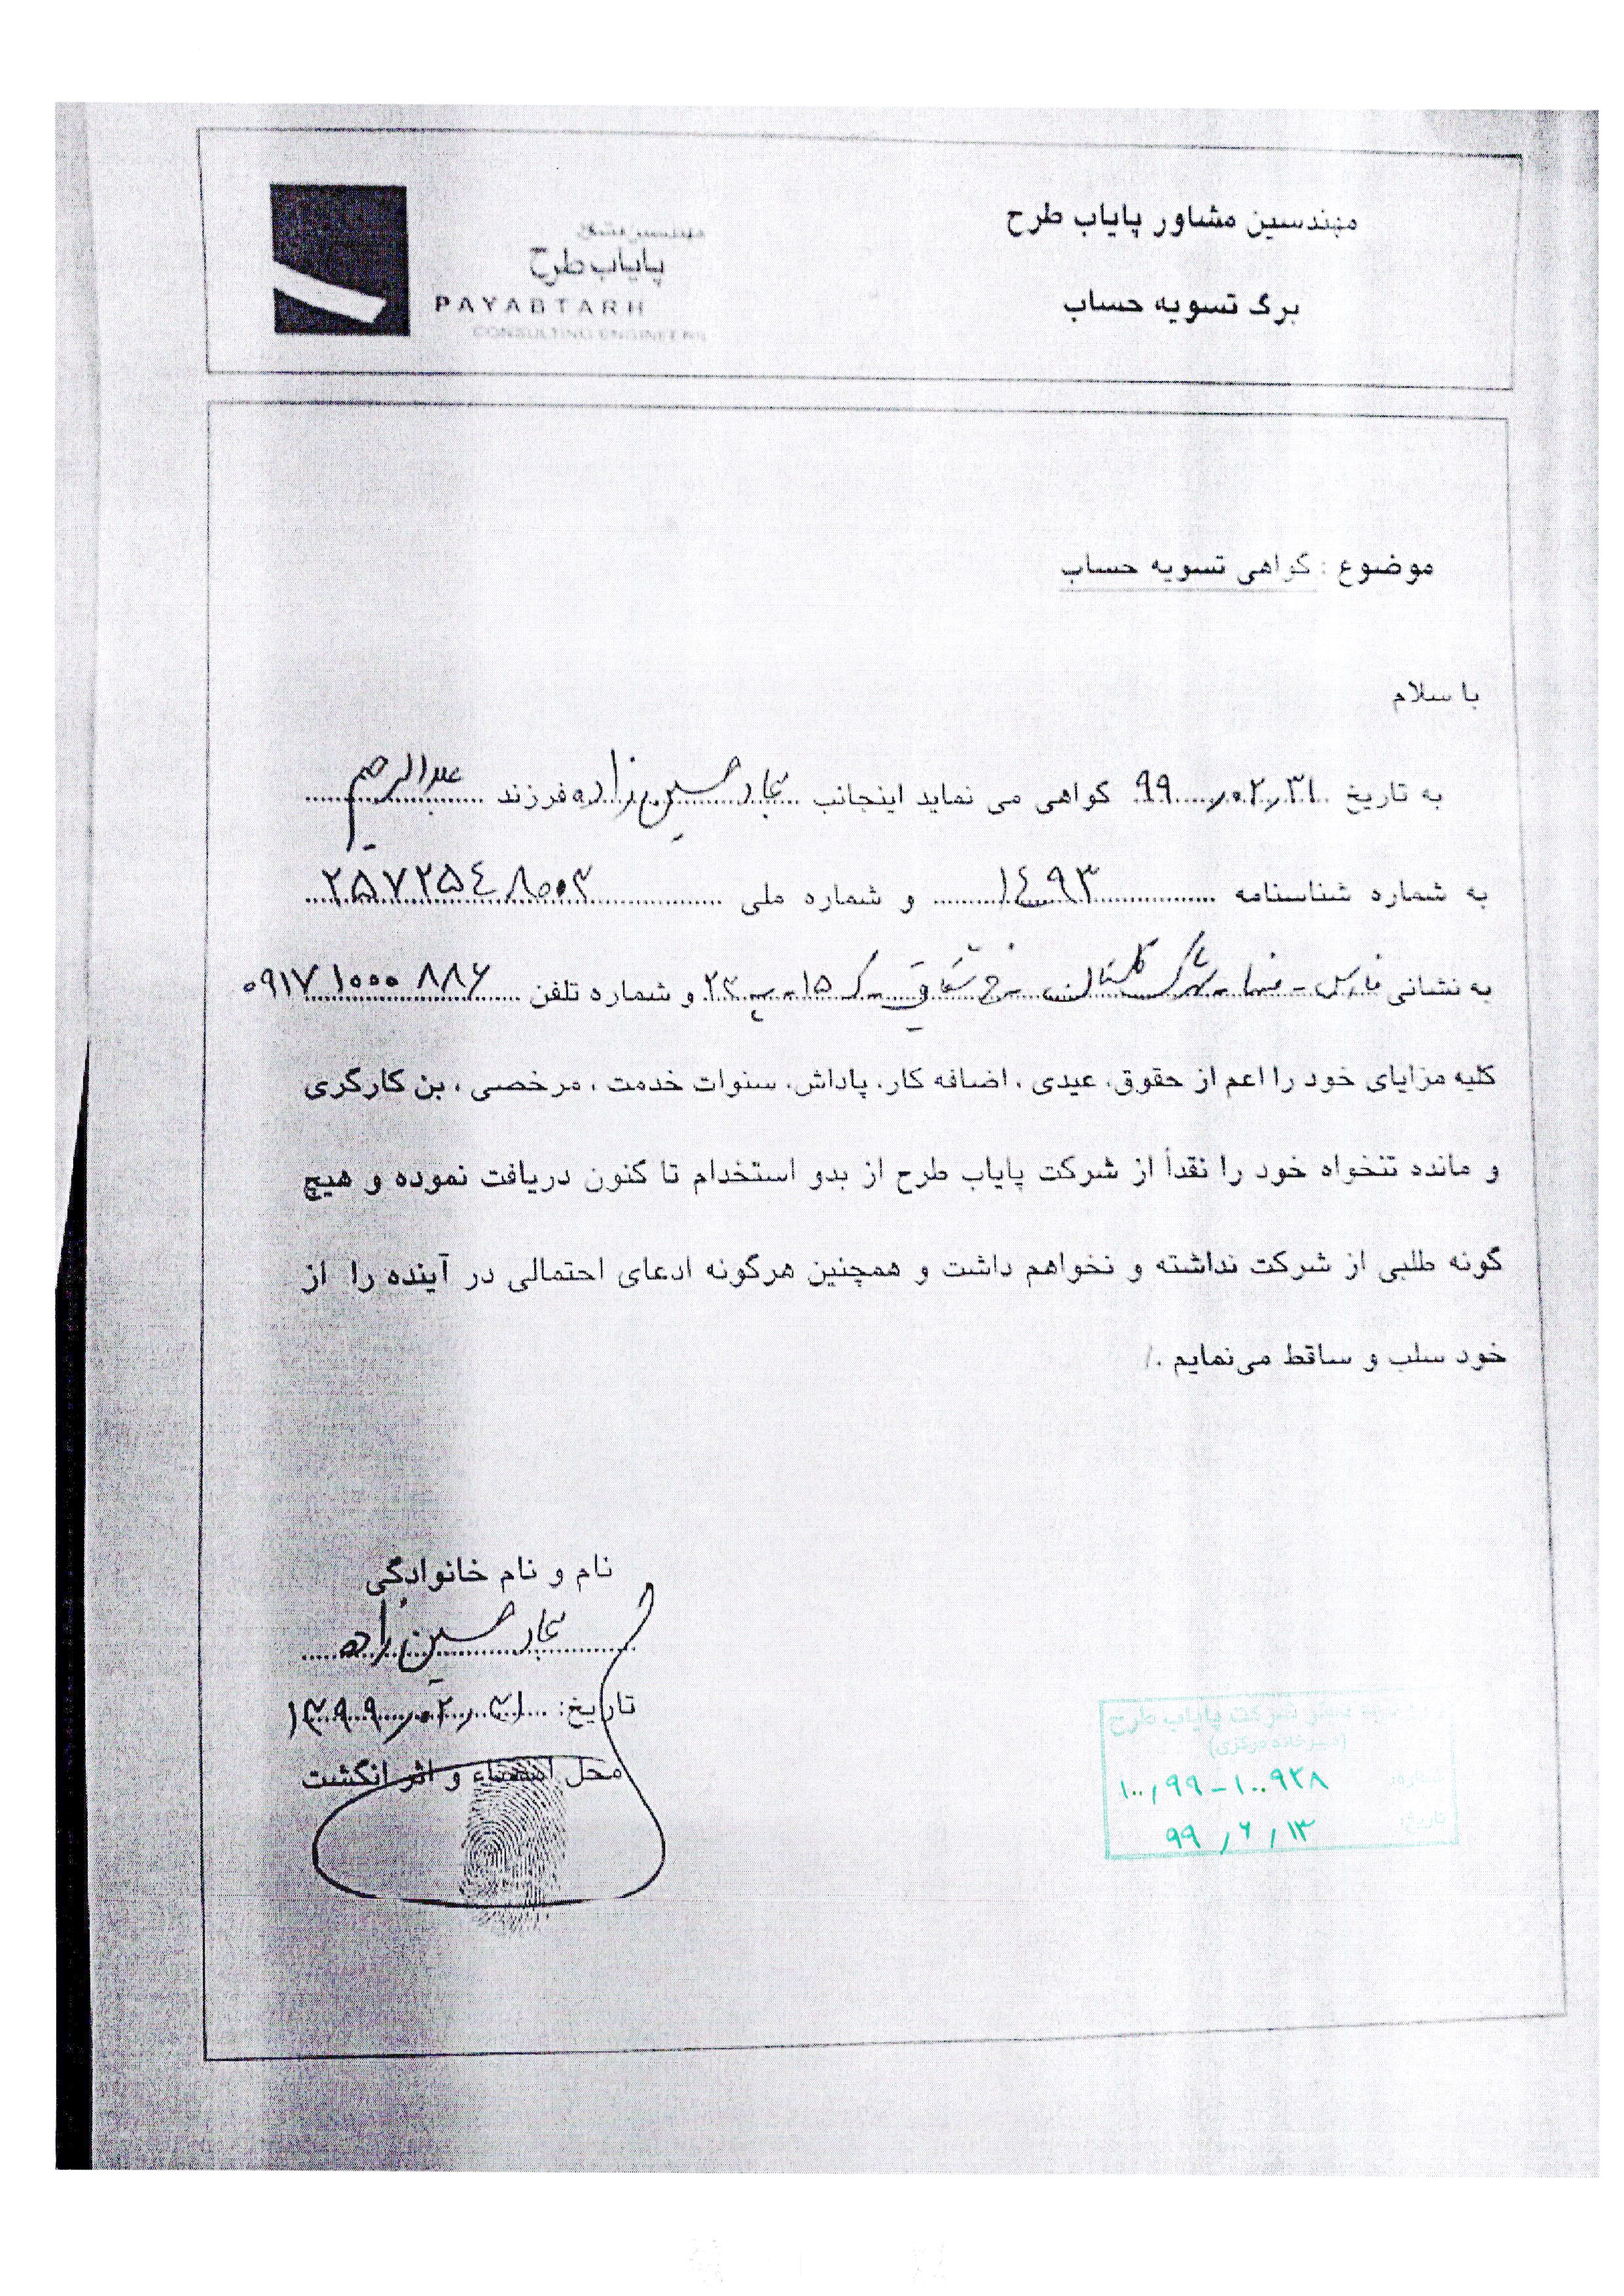 مهندسین مشاور پایاب طرح
برگ تسویه حساب
مهندسین مشاور
پایاب طرح
PAYABTARH
CONSULTING ENGINEERS
موضوع : گواهی تسویه حساب
با سلام
به تاریخ ۹۹/۰۲/۳۱ گواهی می نماید اینجانب حسین زاده فرزند عبدالرحیم
به شماره شناسنامه ۱۴۹۳ و شماره ملی ۲۵۷۲۵۴۸۰۰۳
به نشانی فارس - فسا - شهرک گلستان - خ شقایق - ک ۱۵ - پ ۲۳ و شماره تلفن ۰۹۱۷۱۰۰۰۸۸۶
کلیه مزایای خود را اعم از حقوق، عیدی، اضافه کار، پاداش، سنوات خدمت، مرخصی، بن کارگری
و مانده تنخواه خود را نقداً از شرکت پایاب طرح از بدو استخدام تا کنون دریافت نموده و هیچ
گونه طلبی از شرکت نداشته و نخواهم داشت و همچنین هرگونه ادعای احتمالی در آینده را از
خود سلب و ساقط می‌نمایم ./
نام و نام خانوادگی
حسین زاده
تاریخ: ۱۳۹۹/۰۲/۳۱
محل امضاء و اثر انگشت
شرکت پایاب طرح
(دبیرخانه مرکزی)
شماره: ۱۰۰/۹۹-۱۰۰۹۲۸
تاریخ: ۹۹/۶/۱۳